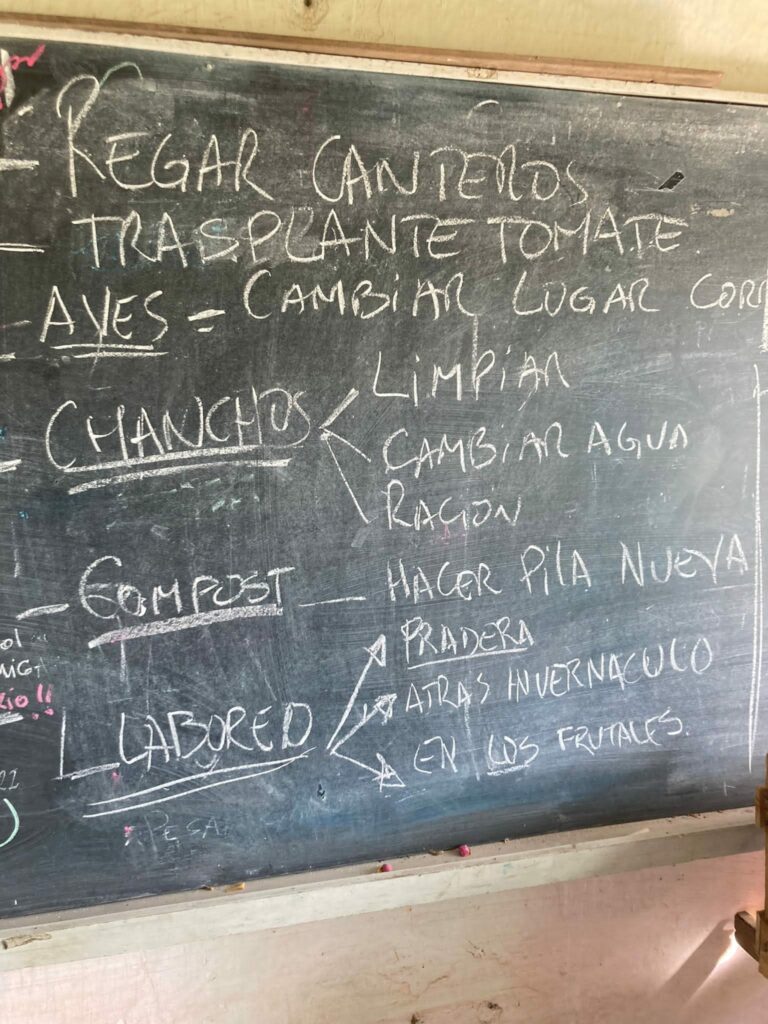 - REGAR CANTEROS
- TRASPLANTE TOMATE.
- AVES = CAMBIAR LUGAR CORR
- CHANCHOS
LIMPIAR
CAMBIAR AGUA
RACION
- COMPOST — HACER PILA NUEVA
LABOREO
PRADERA
ATRAS INVERNACULO
EN LOS FRUTALES.